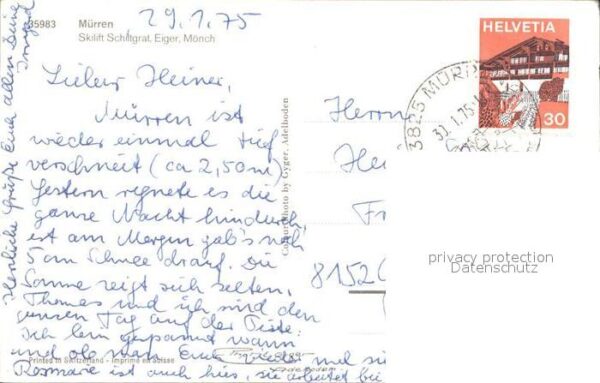 35983 Mürren
Skilift Schiltgrat, Eiger, Mönch
29.1.75
Lieber Heiner,
Mürren ist
wieder einmal tief
verschneit (ca 2,50m)
Gestern regnete es die
ganze Nacht hindurch,
ist am Morgen gab's noch
Schnee drauf. Die
Sonne zeigt sich selten.
Thomas und ich sind den
ganzen Tag auf der Piste.
Ich bin gespannt wann
und ob man Euch
Rosmarie ist auch hier, sie arbeitet bei
Herzliche Grüße Euch allen Deine
Irmgard
Printed in Switzerland - Imprimé en Suisse
Photo by Gyger, Adelboden
HELVETIA
30
3825 MÜRR
30.1.75
Herrn
8152
privacy protection
Datenschutz